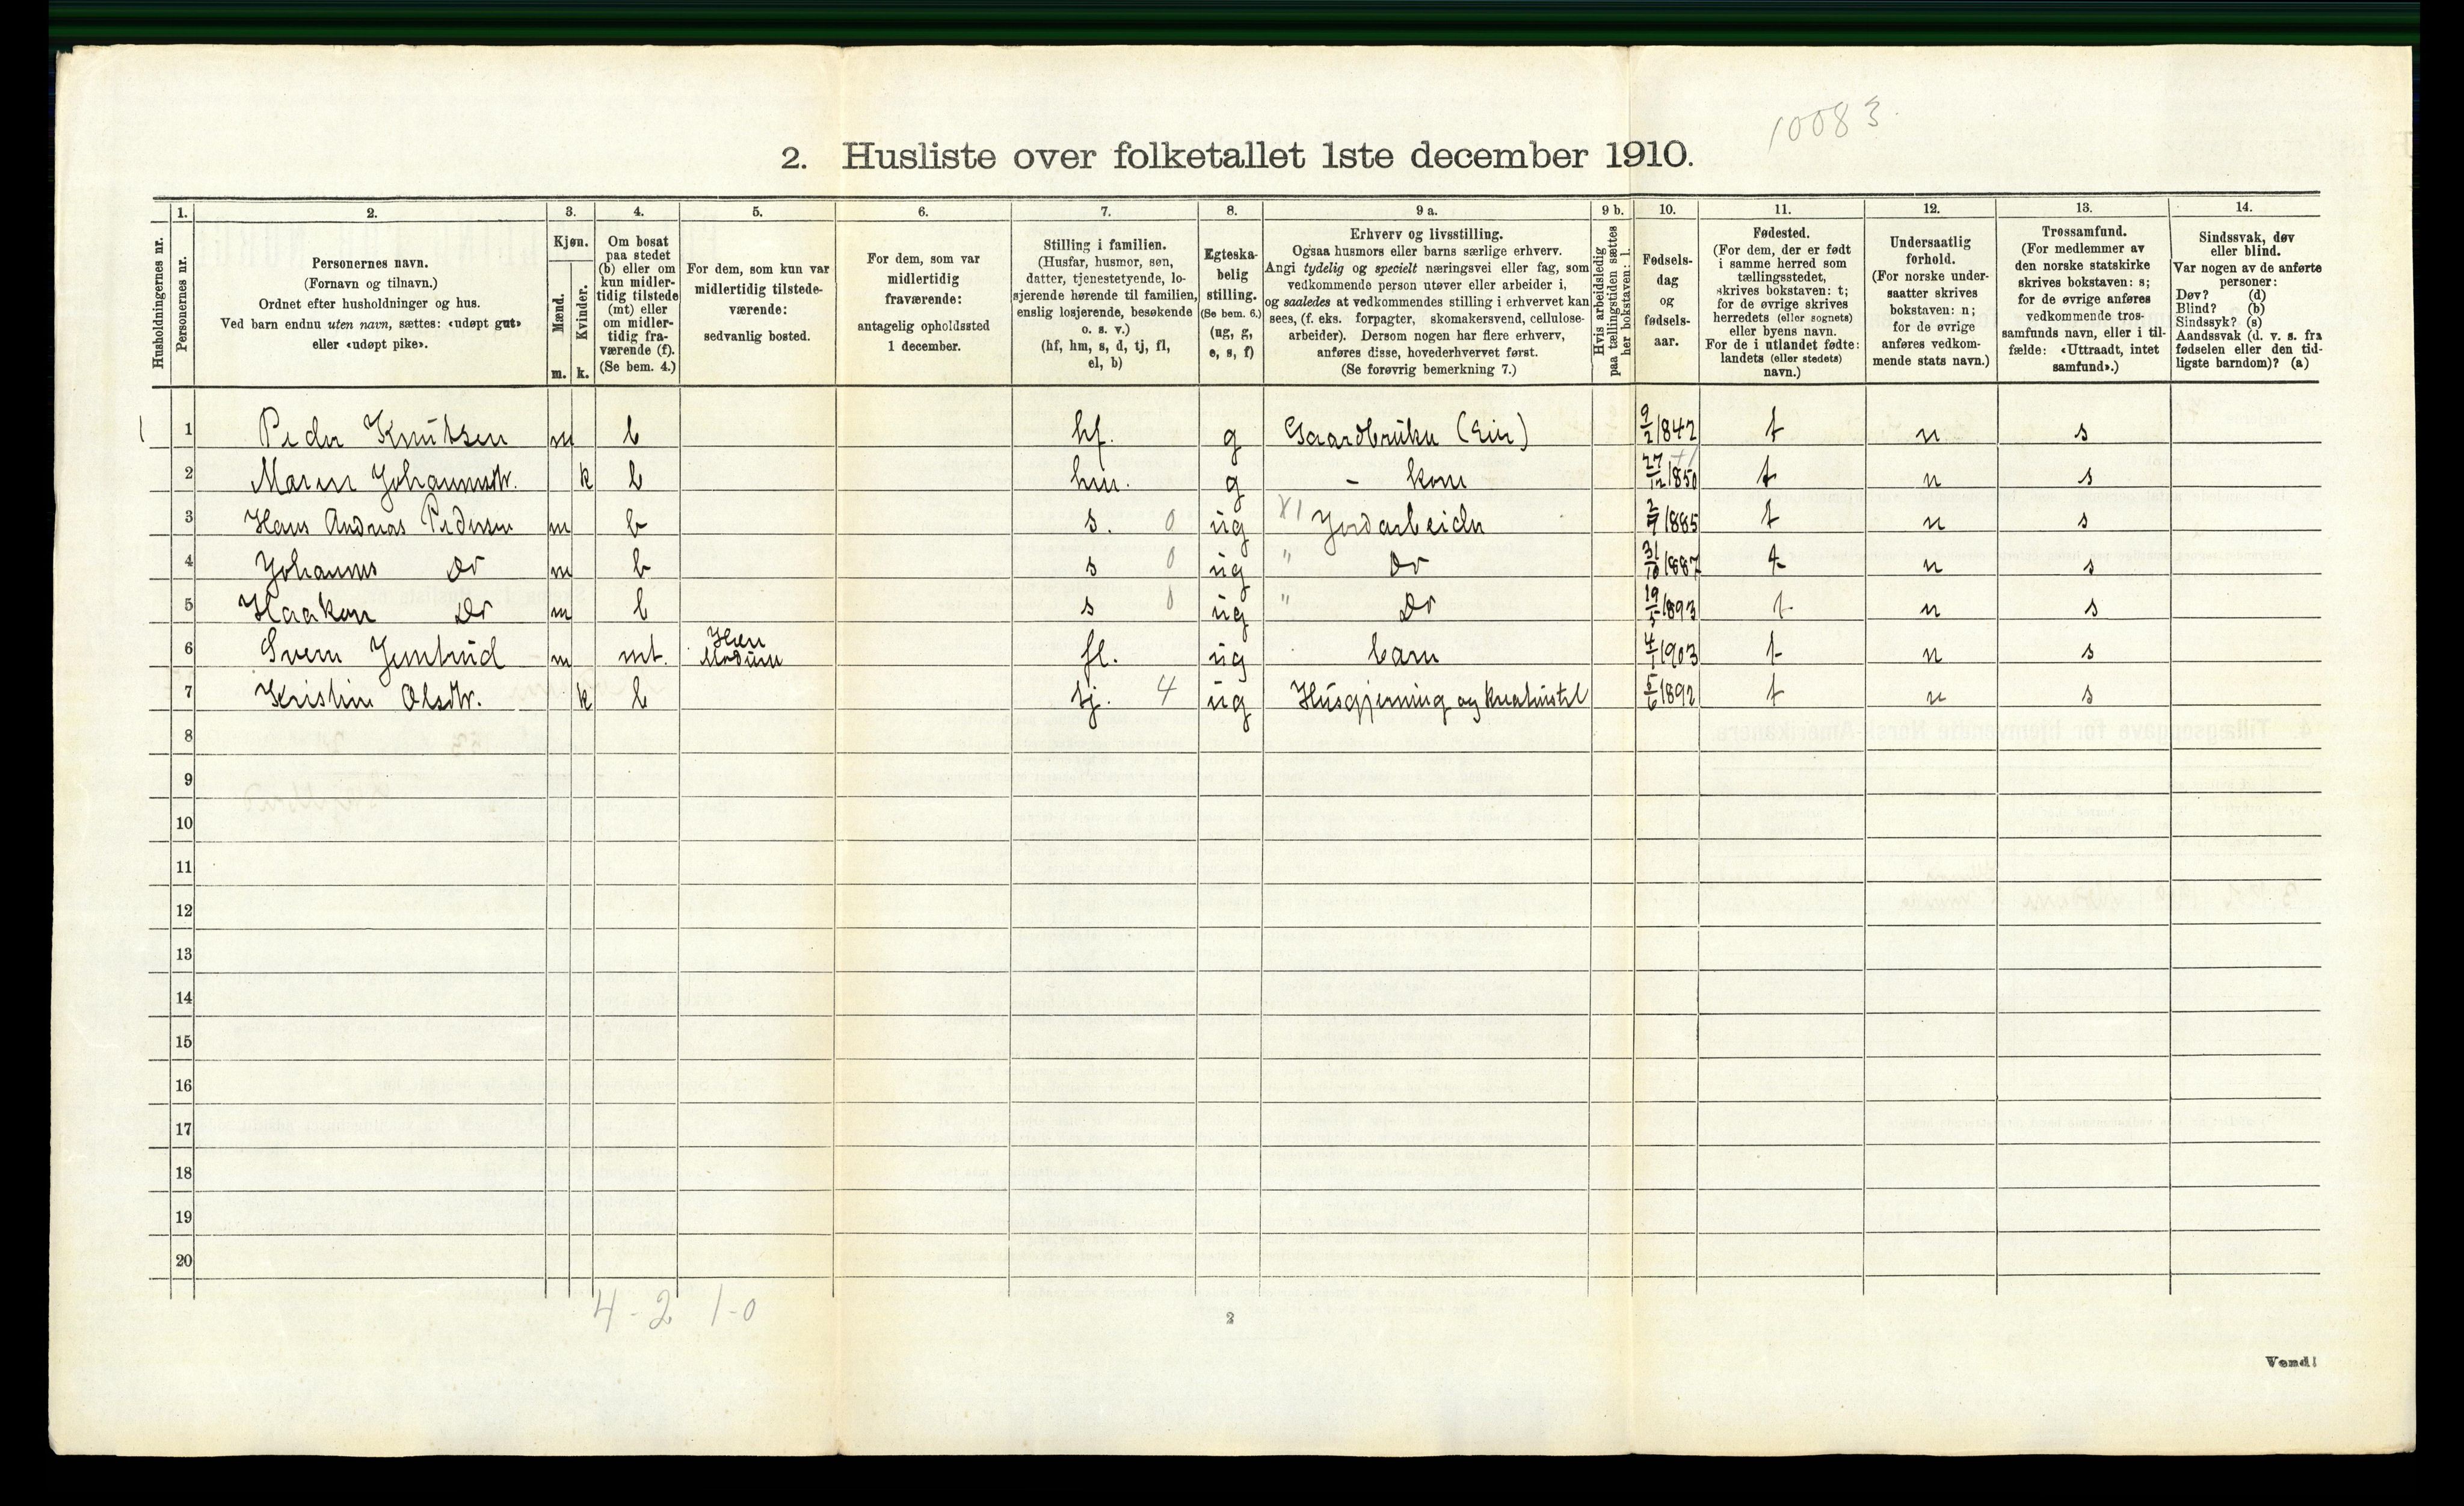 10083
2. Husliste over folketallet 1ste december 1910.
Husholdningernes nr.
1.
Personernes nr.
2.
Personernes navn.
(Fornavn og tilnavn.)
Ordnet efter husholdninger og hus.
Ved barn endnu uten navn, sættes: «udøpt gut»
eller «udøpt pike».
3.
Kjøn.
Mænd.
Kvinder.
m. k.
4.
Om bosat
paa stedet
(b) eller om
kun midler-
tidig tilstede
(mt) eller
om midler-
tidig fra-
værende (f).
(Se bem. 4.)
5.
For dem, som kun var
midlertidig tilstede-
værende:
sedvanlig bosted.
6.
For dem, som var
midlertidig
fraværende:
antagelig opholdssted
1 december.
7.
Stilling i familien.
(Husfar, husmor, søn,
datter, tjenestetyende, lo-
sjerende hørende til familien,
enslig losjerende, besøkende
o. s. v.)
(hf, hm, s, d, tj, fl,
el, b)
8.
Egteska-
belig
stilling.
(Se bem. 6.)
(ug, g,
e, s, f)
9 a.
Erhverv og livsstilling.
Ogsaa husmors eller barns særlige erhverv.
Angi tydelig og specielt næringsvei eller fag, som
vedkommende person utøver eller arbeider i,
og saaledes at vedkommendes stilling i erhvervet kan
sees, (f. eks. forpagter, skomakersvend, cellulose-
arbeider). Dersom nogen har flere erhverv,
anføres disse, hovederhvervet først.
(Se forøvrig bemerkning 7.)
9 b.
Hvis arbeidsledig
paa tællingstiden sættes
her bokstaven: l.
10.
Fødsels-
dag
og
fødsels-
aar.
11.
Fødested.
(For dem, der er født
i samme herred som
tællingsstedet,
skrives bokstaven: t;
for de øvrige skrives
herredets (eller sognets)
eller byens navn.
For de i utlandet fødte:
landets (eller stedets)
navn.)
12.
Undersaatlig
forhold.
(For norske under-
saatter skrives
bokstaven: n;
for de øvrige
anføres vedkom-
mende stats navn.)
13.
Trossamfund.
(For medlemmer av
den norske statskirke
skrives bokstaven: s;
for de øvrige anføres
vedkommende tros-
samfunds navn, eller i til-
fælde: «Uttraadt, intet
samfund».)
14.
Sindssvak, døv
eller blind.
Var nogen av de anførte
personer:
Døv? (d)
Blind? (b)
Sindssyk? (s)
Aandssvak (d. v. s. fra
fødselen eller den tid-
ligste barndom)? (a)
1 1 Peder Knutsen m b hf. g Gaardbruker (Eier) 9/2 1842 t n s
2 Maren Johannesdtr. k b hm. g - kone 27/12 1850 t n s
3 Hans Andreas Pedersen m b s. 0 ug X1 Jordarbeider 2/7 1885 t n s
4 Johannes Do m b s 0 ug " Do 31/10 1887 t n s
5 Haakon Do m b s 0 ug " Do 19/5 1893 t n s
6 Sverre Jemtrud m mt. Hæn Modum fl. ug barn 4/1 1903 t n s
7 Kristine Olsdtr. k b tj. 4 ug Husgjerning og kreaturstel 5/6 1892 t n s
8
9
10
11
12
13
14
15
16
17
18
19
20
4-2 1-0
2
Vend!